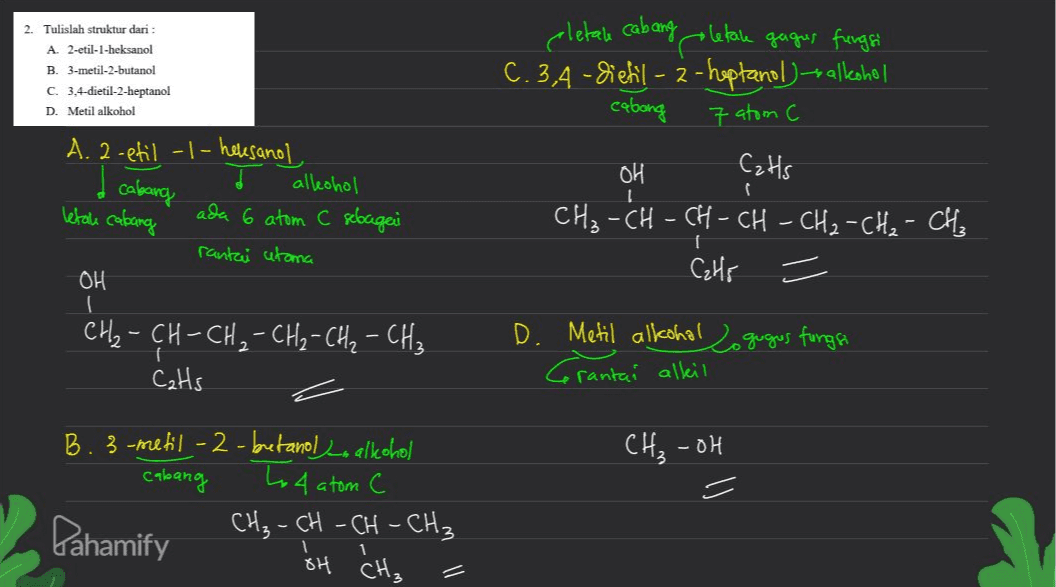 2. Tulislah struktur dari :
A. 2-etil-1-heksanol
B. 3-metil-2-butanol
C. 3,4-dietil-2-heptanol
D. Metil alkohol
A. 2-etil -1- heksanol
cabang
alkohol
letak cabang
ada 6 atom C sebagai
rantai utama
OH
CH2 - CH - CH2 - CH2 - CH2 - CH3
C2H5
B. 3-metil - 2 - butanol alkohol
cabang
4 atom C
CH3 - CH - CH - CH3
OH CH3
letak cabang letak gugus fungsi
C. 3,4 - Dietil - 2 - heptanol alkohol
cabang 7 atom C
OH C2H5
CH3 - CH - CH - CH - CH2 - CH2 - CH3
C2H5
D. Metil alkohol gugus fungsi
rantai alkil
CH3 - OH
Pahamify